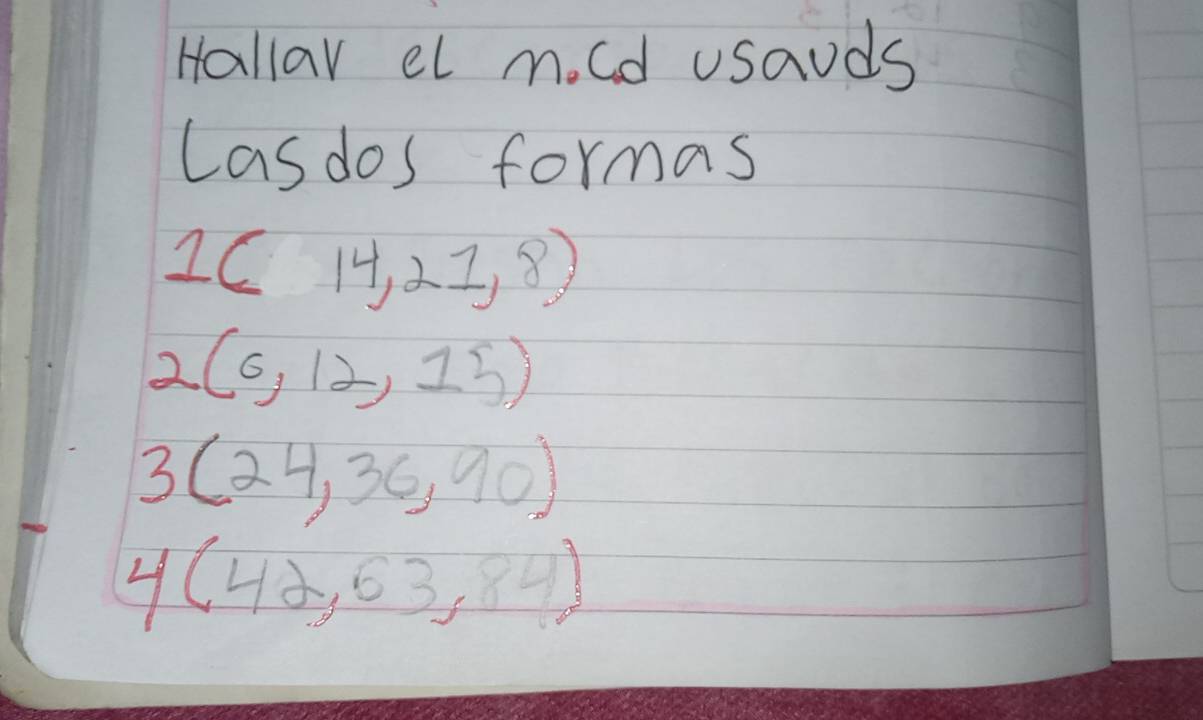 Hallar el m.cd usauds
Las dos formas
1( 14,21,8)
2(6,12,15)
3(24,36,90)
4(42,63,84)